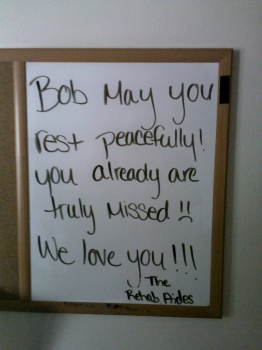 Bob May you
rest peacefully!
you already are
truly missed!!
We love you!!!
The
Rehab Aides